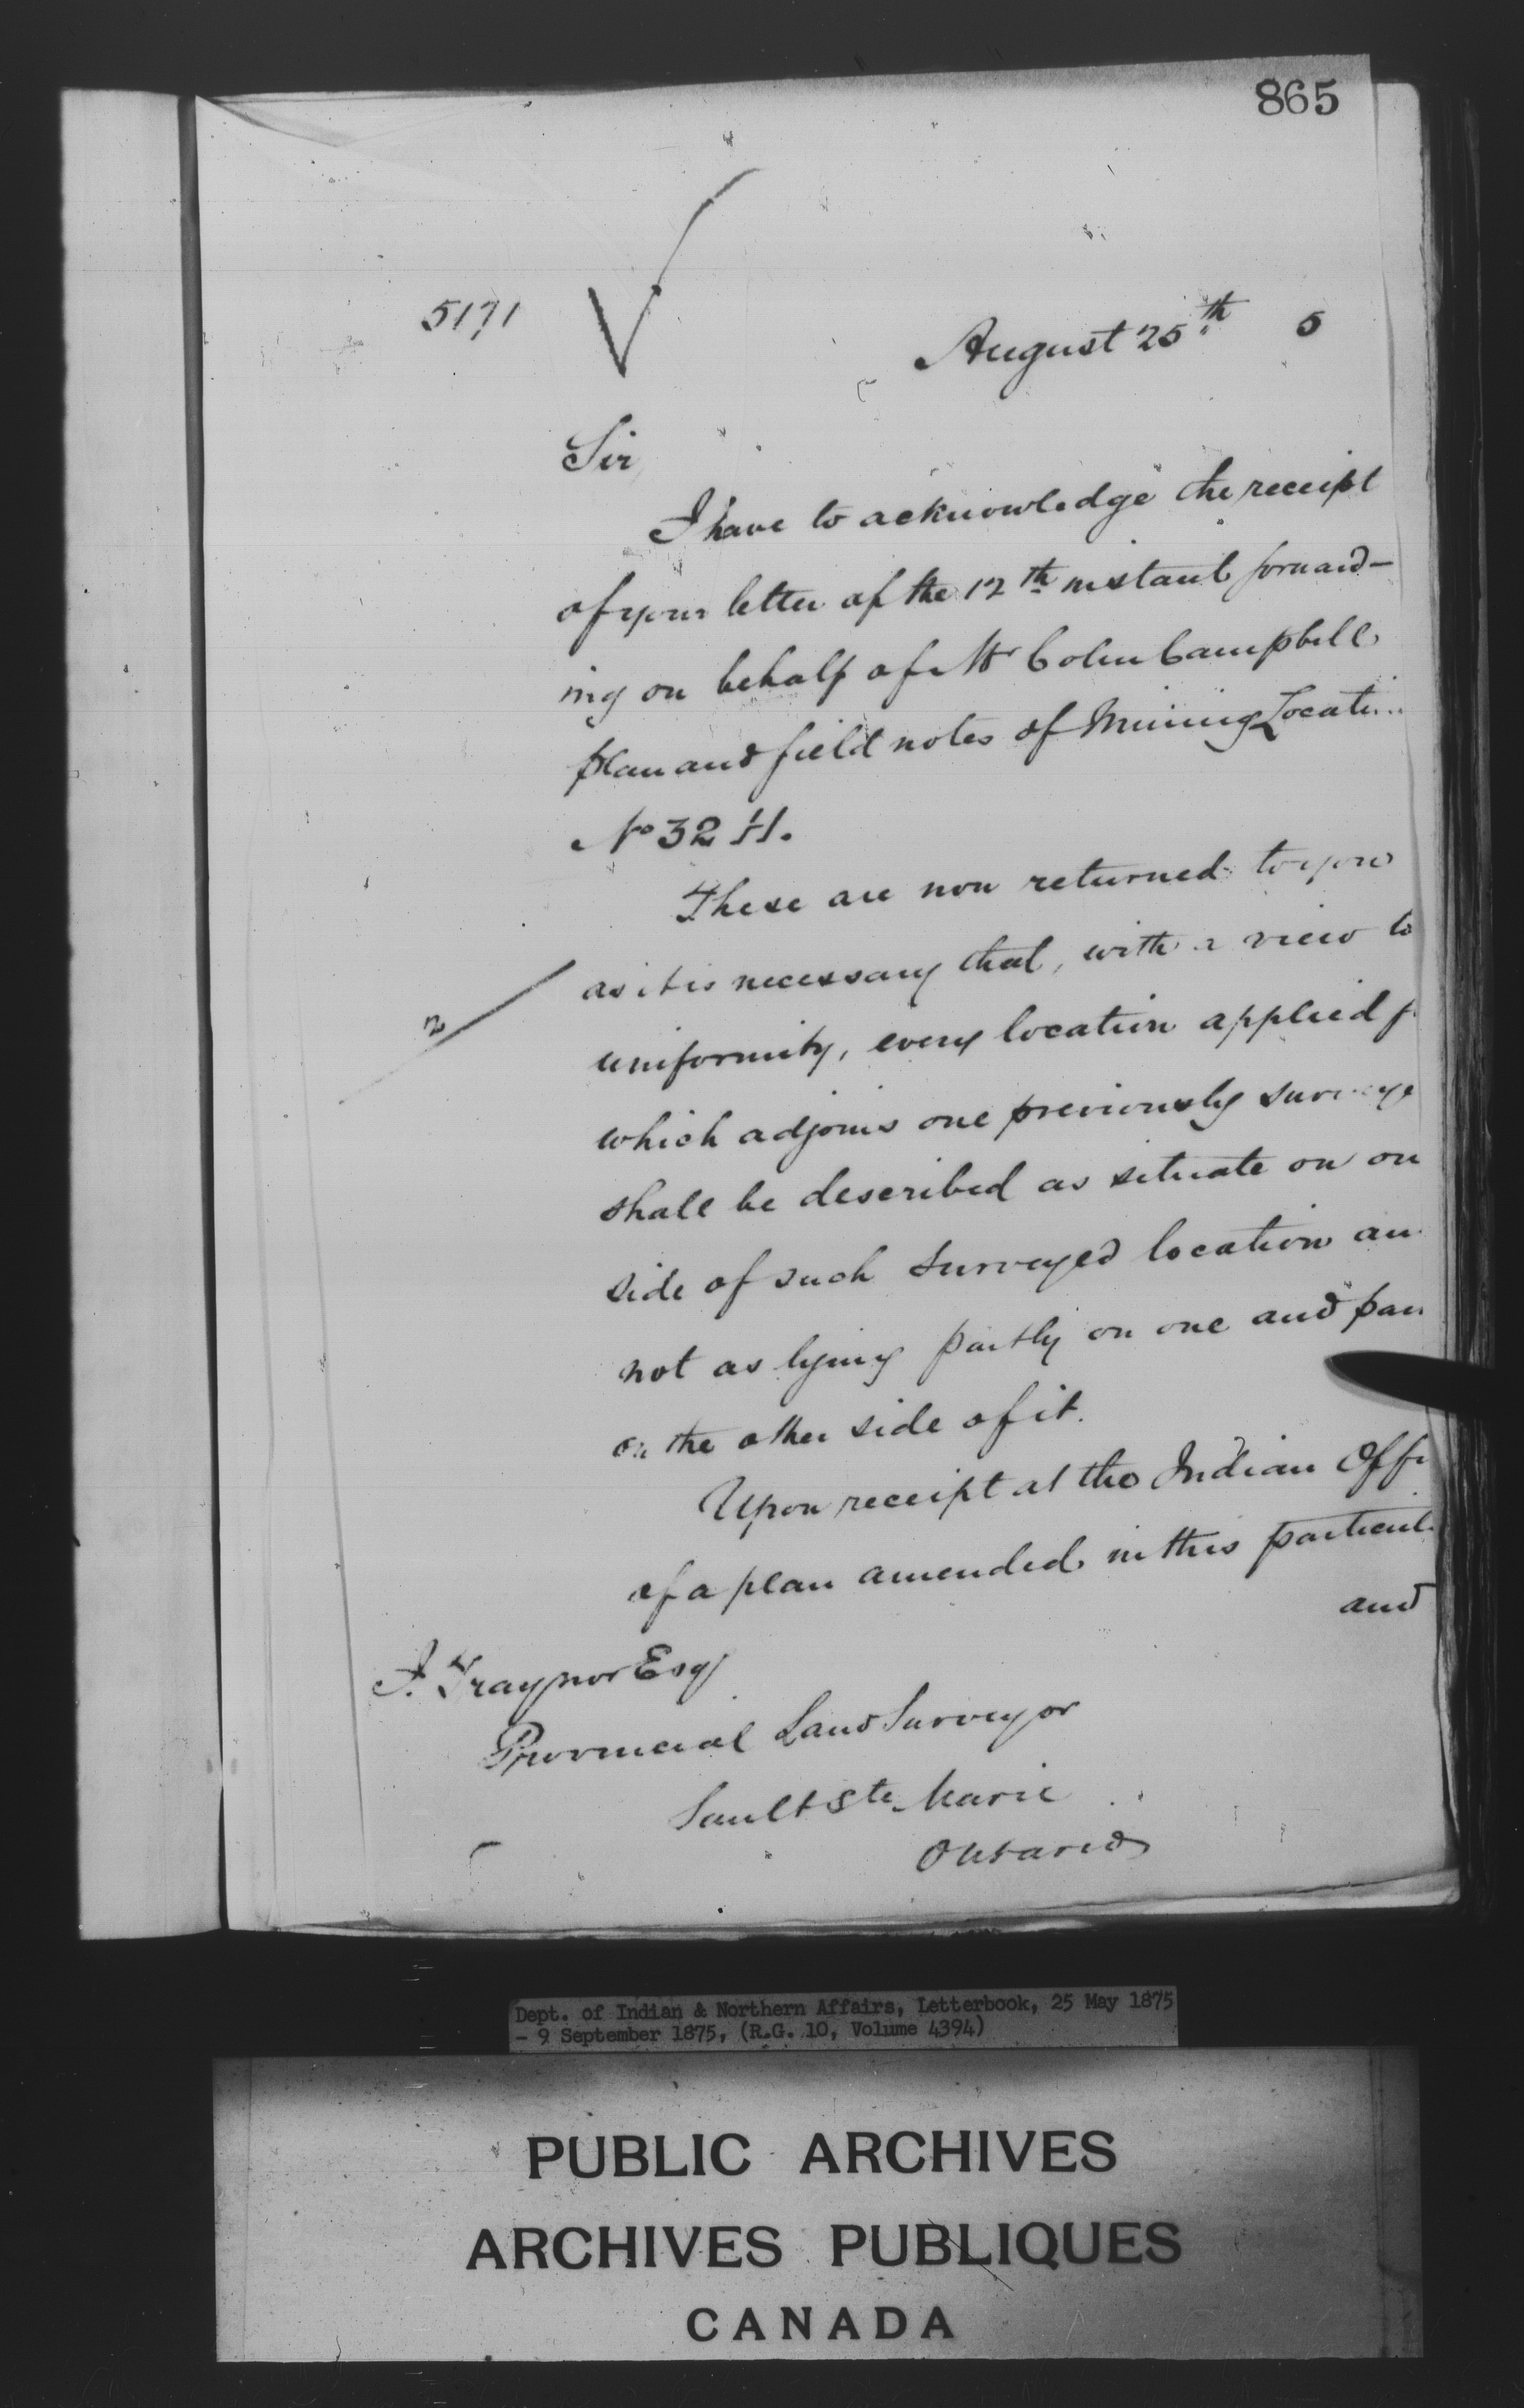 865
5171
August 25th 5
Sir
I have to acknowledge the receipt
of your letter of the 12th instant forward-
ing on behalf of Mr Colin Campbell
plan and field notes of Mining Locati
No 32 H.
These are now returned to you
as it is necessary that, with a view to
uniformity, every location applied f
which adjoins one previously surveye
shall be described as situate on on
side of such surveyed location an
not as lying partly on one and par
on the other side of it.
2
Upon receipt at the Indian Offi
of a plan amended in this particul
and
J. Traynor Esq
Provincial Land Surveyor
Sault Ste Marie
Ontario
Dept. of Indian & Northern Affairs, Letterbook, 25 May 1875
- 9 September 1875, (R.G. 10, Volume 4394)
PUBLIC ARCHIVES
ARCHIVES PUBLIQUES
CANADA